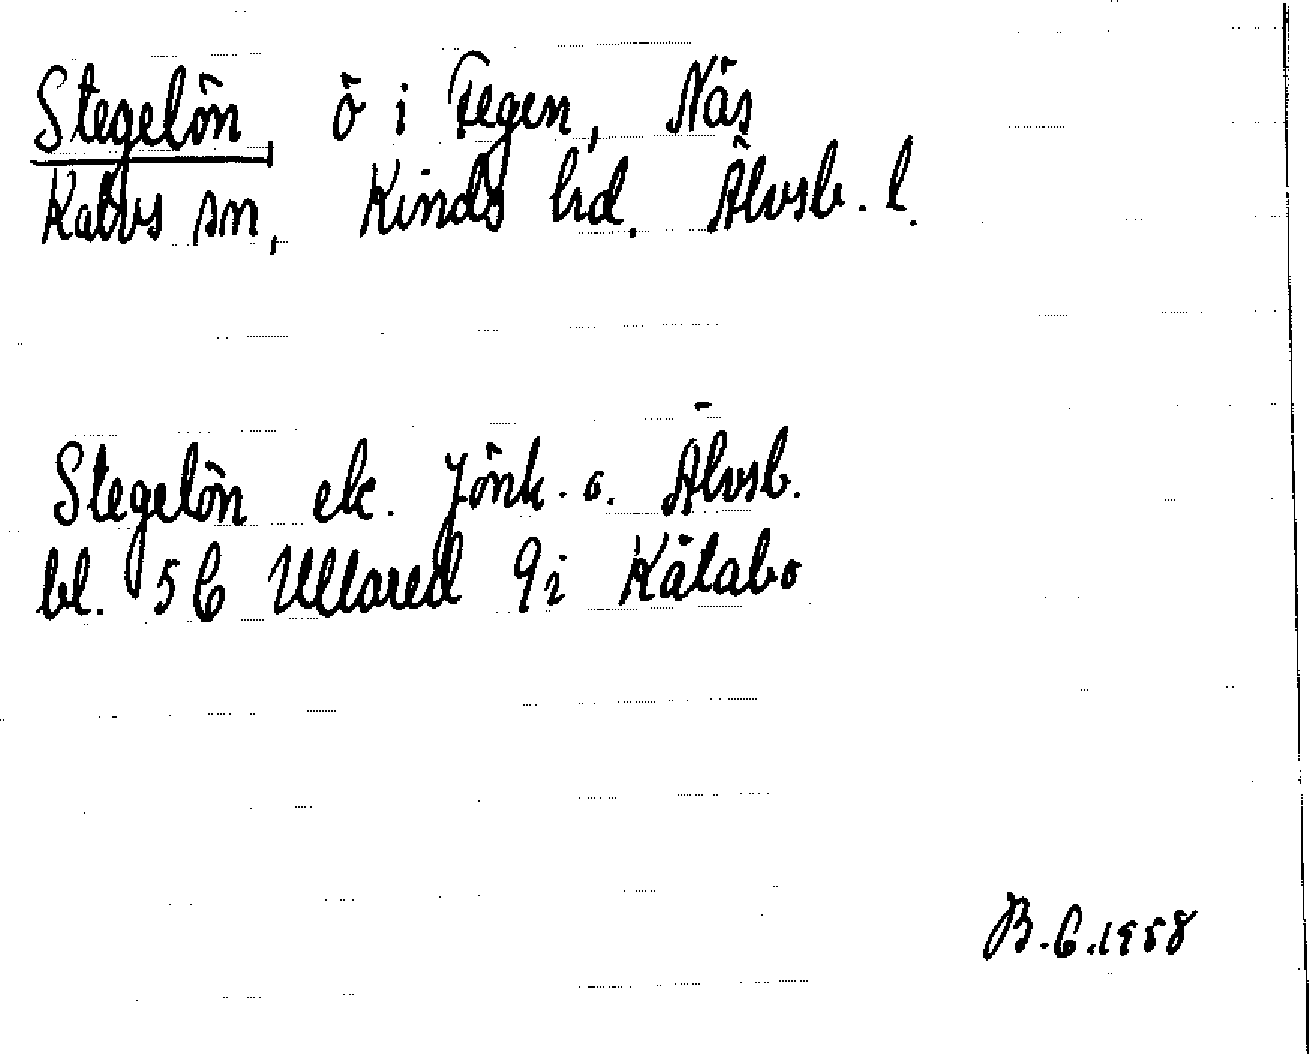 Stegelön, ö i Fegen, Näs
Kalvs sn, Kinds hd. Älvsb. l.
Stegelön ek. Jönk. o. Älvsb.
bl. 5C Ullared 9i Kätabo
B.G.1958